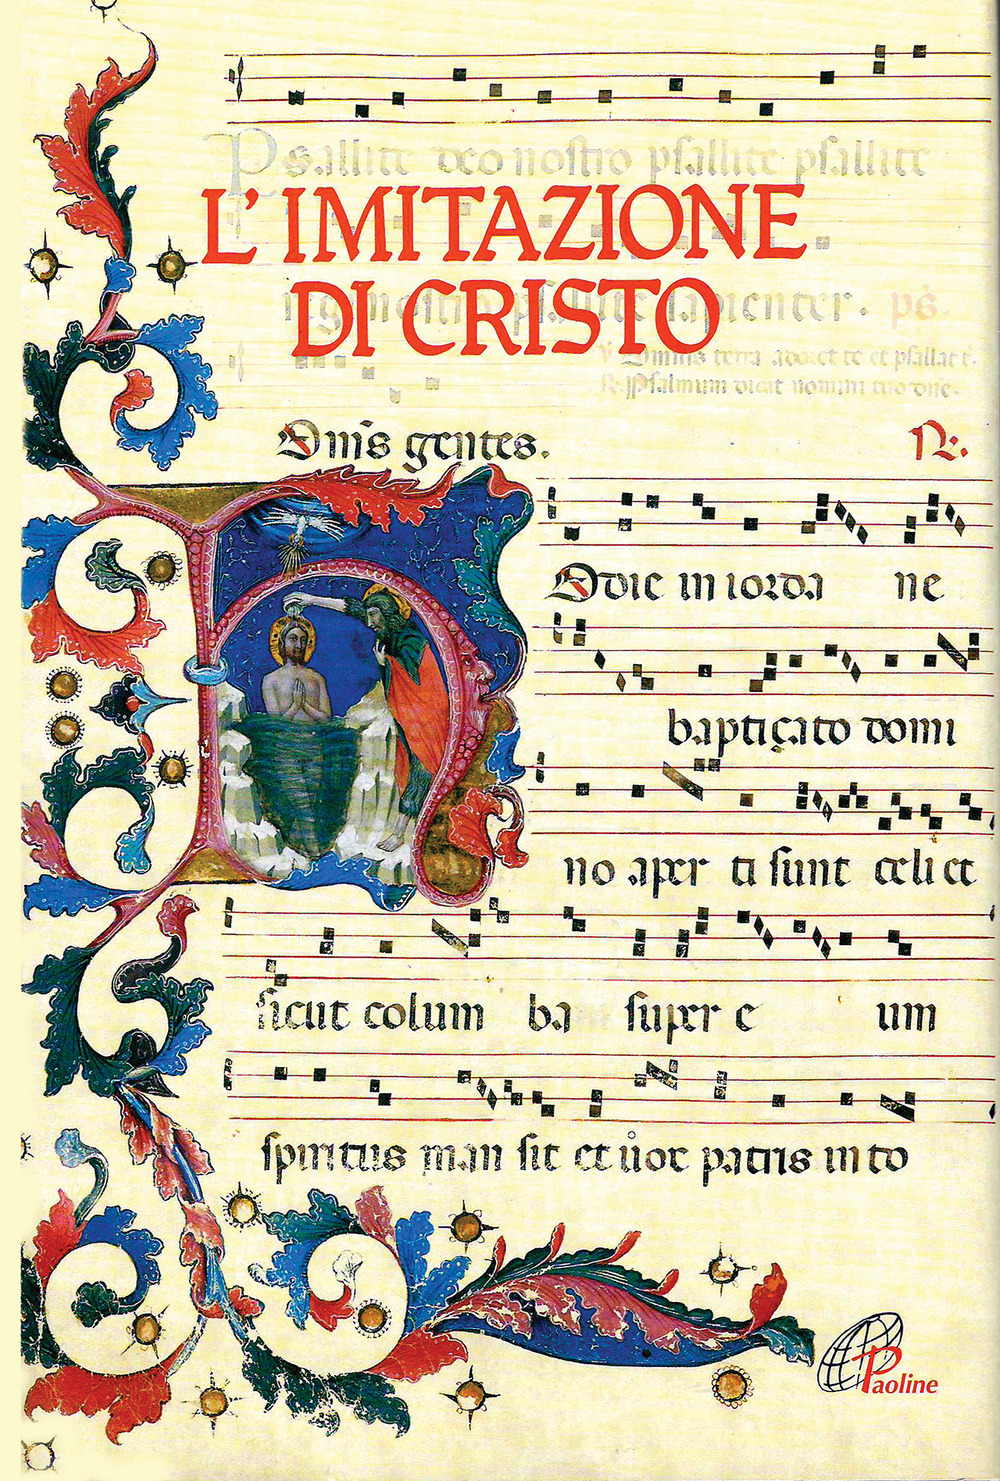 Psallite deo nostro psallite psallite
L'IMITAZIONE
DI CRISTO
regi nostro psallite sapienter. ps.
Omnis terra adoret te et psallat t.
R. Psalmum dicat nomini tuo dne.
Omīs gentes. R.
Odie in iorda ne
baptiçato domi
no aper ti sunt celi et
sicut colum bam super e um
spiritus man sit et uox patris into
Paoline